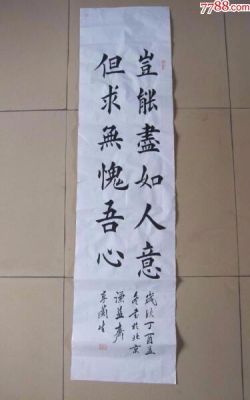 7788.com
豈能盡如人意
但求無愧吾心
歲次丁酉孟
冬書於北京
謙益齋
李蘭生